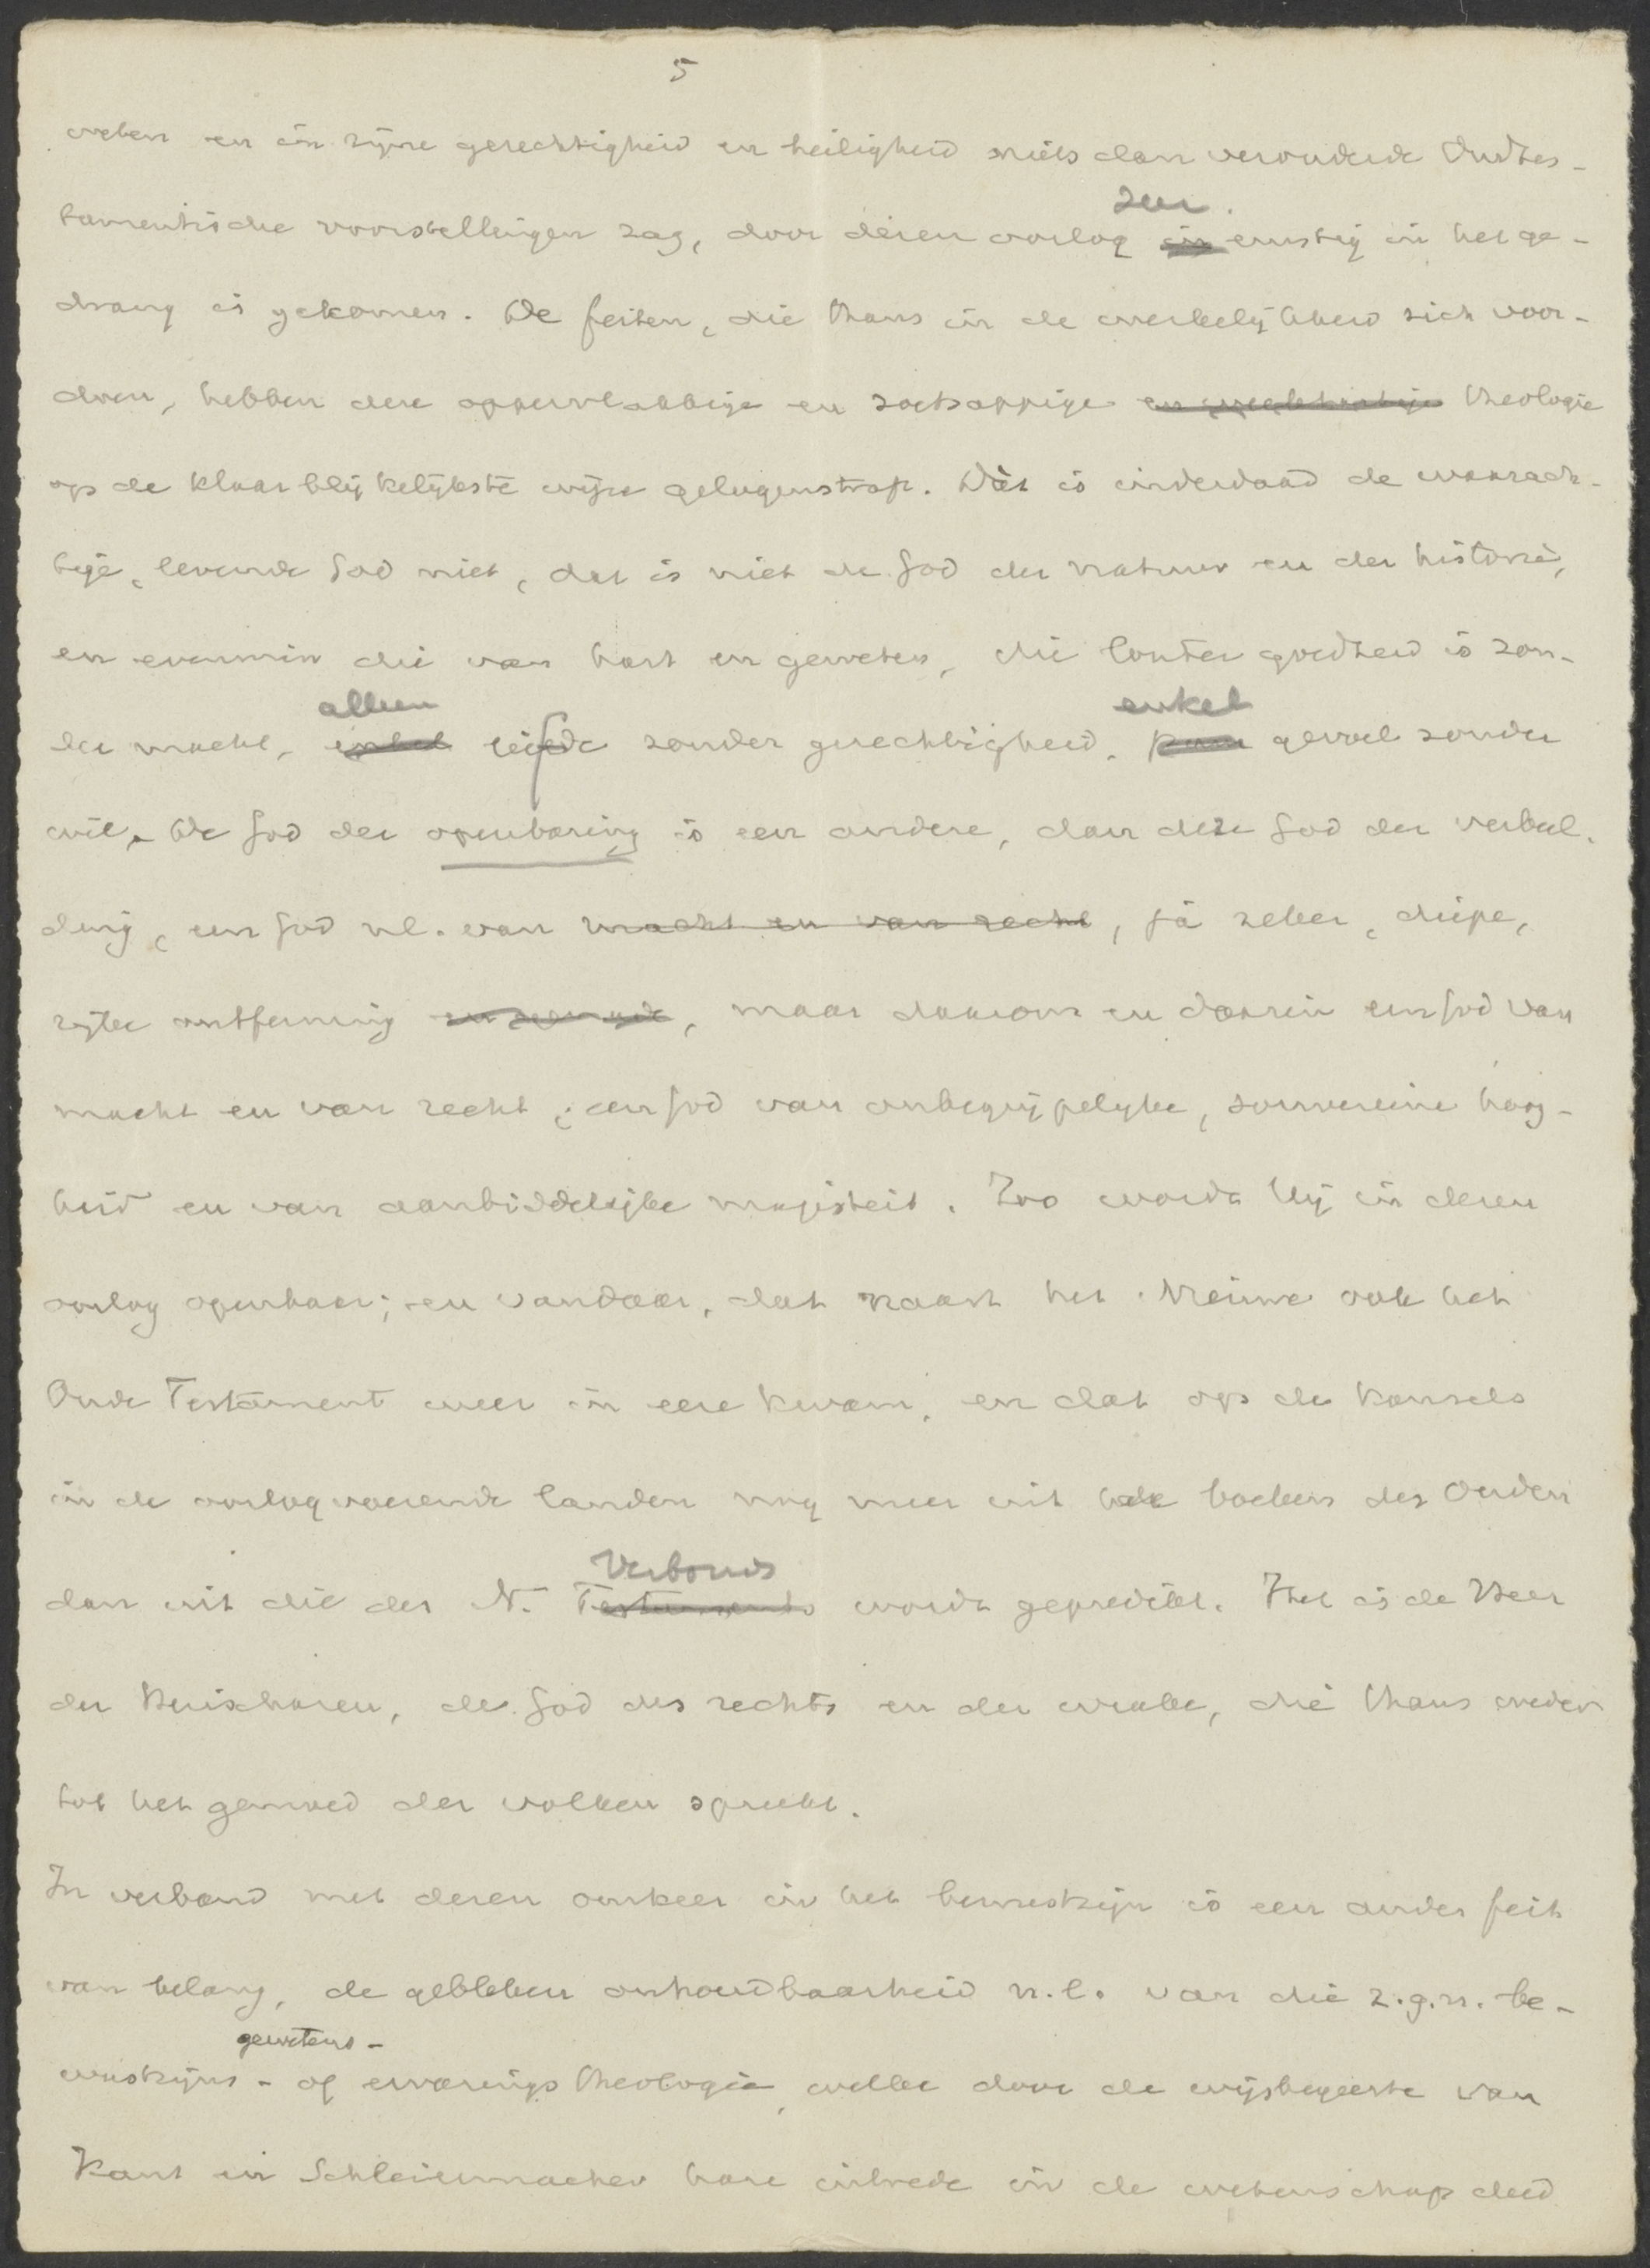 5
weten en in zijne gerechtigheid en heiligheid niets dan verouderde Oudtes-
tamentische voorstellingen zag, door dezen oorlog in zeer ernstig in het ge-
drang is gekomen. De feiten, die thans in de werkelijkheid zich voor-
doen, hebben deze oppervlakkige en zoetsappige en theologie
op de klaarblijkelijkste wijze gelogenstraft. Dàt is inderdaad de waarach-
tige, levende God niet, dat is niet de God der natuur en der historie,
en evenmin die van hart en geweten, die louter goedheid is zon-
der macht, enkel alleen liefde zonder gerechtigheid, puur enkel gevoel zonder
wil. De God der openbaring is een andere, dan deze God der verbeel-
ding, een God nl. van macht en van recht, ja zeker, diepe,
rijke ontferming, maar daarom en daarin een God van
macht en van recht, een God van onbegrijpelijke, souvereine hoog-
heid en van aanbiddelijke majesteit. Zoo wordt Hij in dezen
oorlog openbaar; en vandaar, dat naast het Nieuwe ook het
Oude Testament weer in eere kwam, en dat op de kansels
in de oorlogvoerende landen nog meer uit de boeken des Ouden
dan uit die des N. Testaments Verbonds wordt gepredikt. Het is de Heer
der Heirscharen, de God des rechts en der wrake, die thans weder
tot het gemoed der volken spreekt.
In verband met dezen omkeer in het bewustzijn is een ander feit
van belang, de gebleken onhoudbaarheid n.l. van die z.g.n. be-
wustzijns- gewetens- of ervarings theologie, welke door de wijsbegeerte van
Kant en Schleiermacher hare intrede in de wetenschap deed